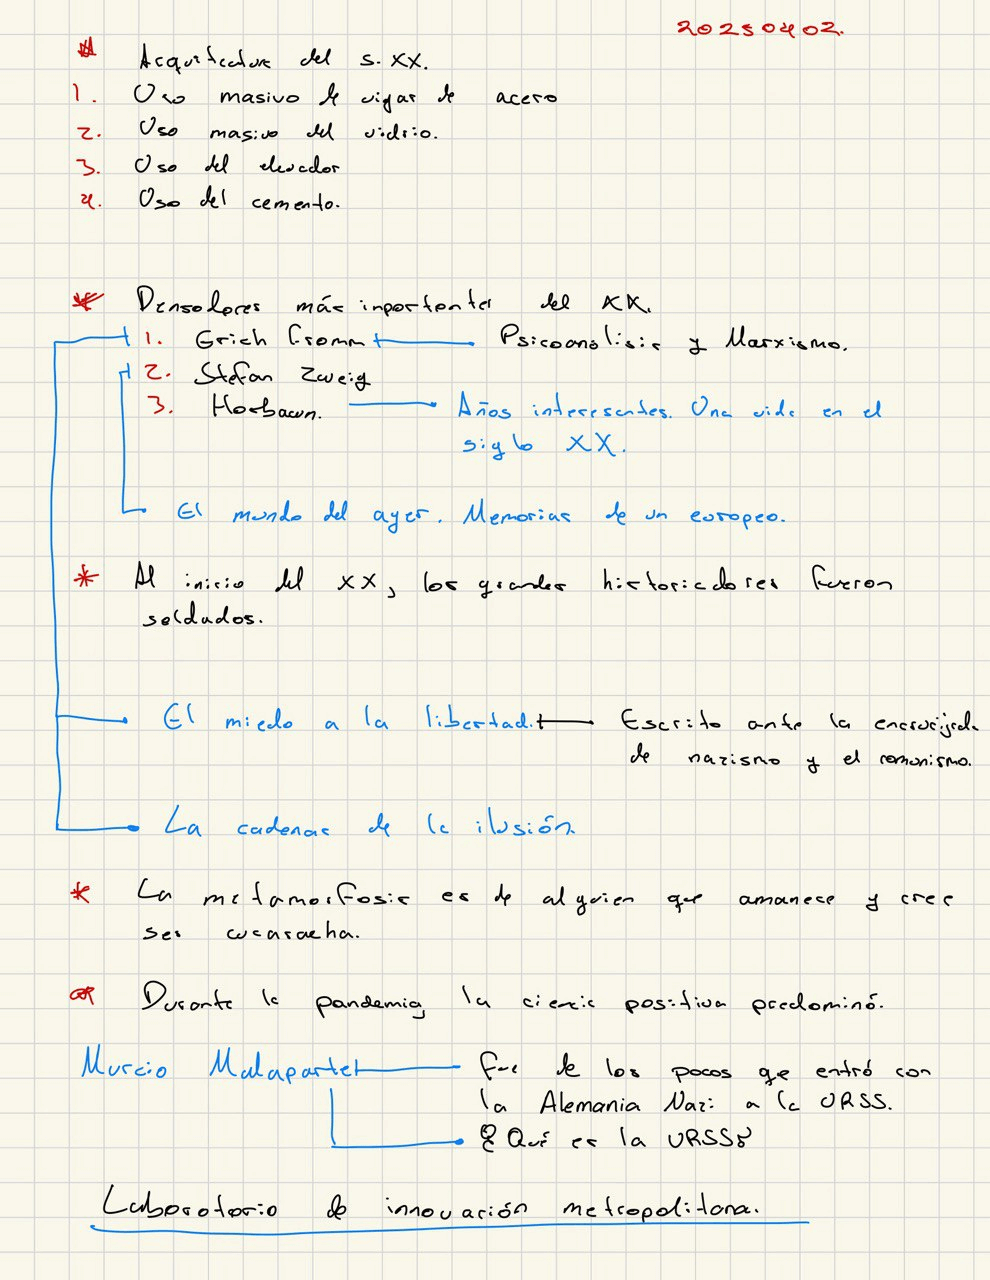 20250402.
* Arquitectura del s. XX.
1. Uso masivo de vigas de acero
2. Uso masivo del vidrio.
3. Uso del elevador
4. Uso del cemento.
* Pensadores más inportantes del XX.
1. Erich Fromm Psicoanálisis y Marxismo.
2. Stefan Zweig
3. Horbawn. Años interesantes. Una vida en el
siglo XX.
El mundo del ayer. Memorias de un europeo.
* Al inicio del XX, los grandes historicadores fueron
soldados.
El miedo a la libertad. Escrito ante la encrucijada
de nazismo y el comunismo.
La cadenas de la ilusión.
* La metamorfosis es de alguien que amanece y cree
ser cucaracha.
* Durante la pandemia, la ciencia positiva predominó.
Murcio Malaparte Fue de los pocos que entró con
la Alemania Nazi a la URSS.
¿Qué es la URSS?
Laboratorio de innovación metropolitana.